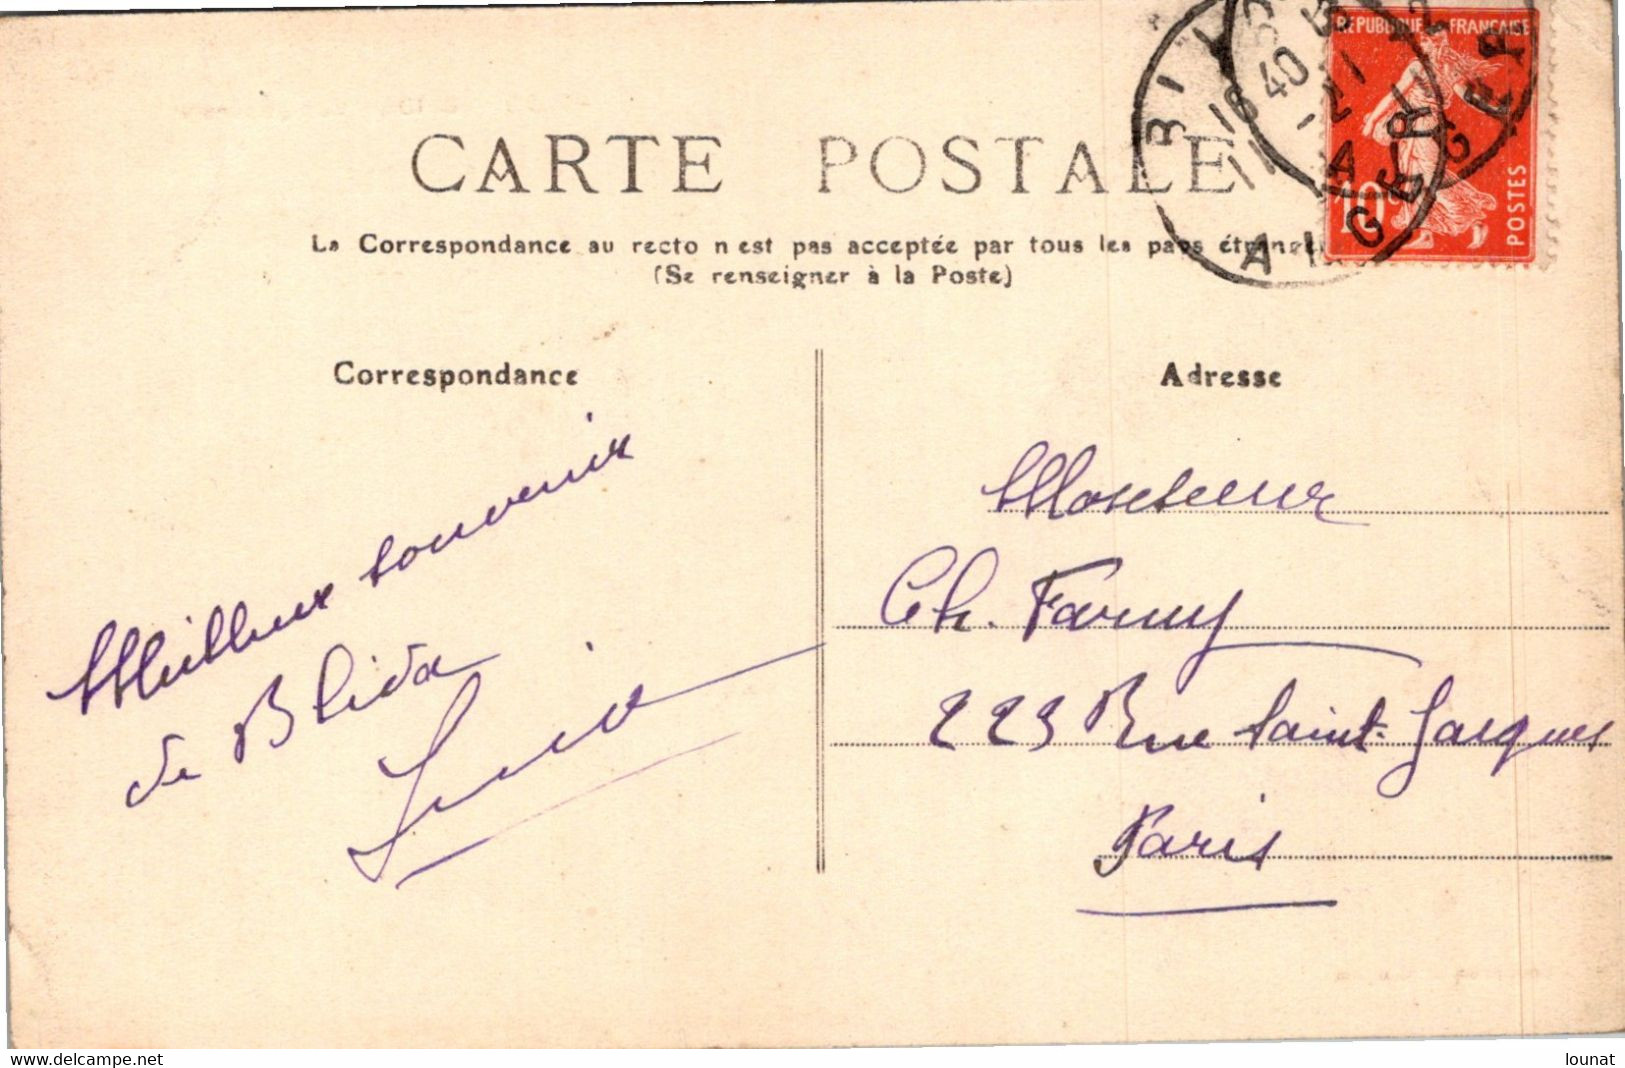 CARTE POSTALE
La Correspondance au recto n'est pas acceptée par tous les pays étrangers
(Se renseigner à la Poste)
REPUBLIQUE FRANÇAISE
10c
POSTES
ALGER
Correspondance
Adresse
Meilleur souvenir
de Blida
Monsieur
Ch. Farny
223 Rue Saint-Jacques
Paris
www.delcampe.net
lounat